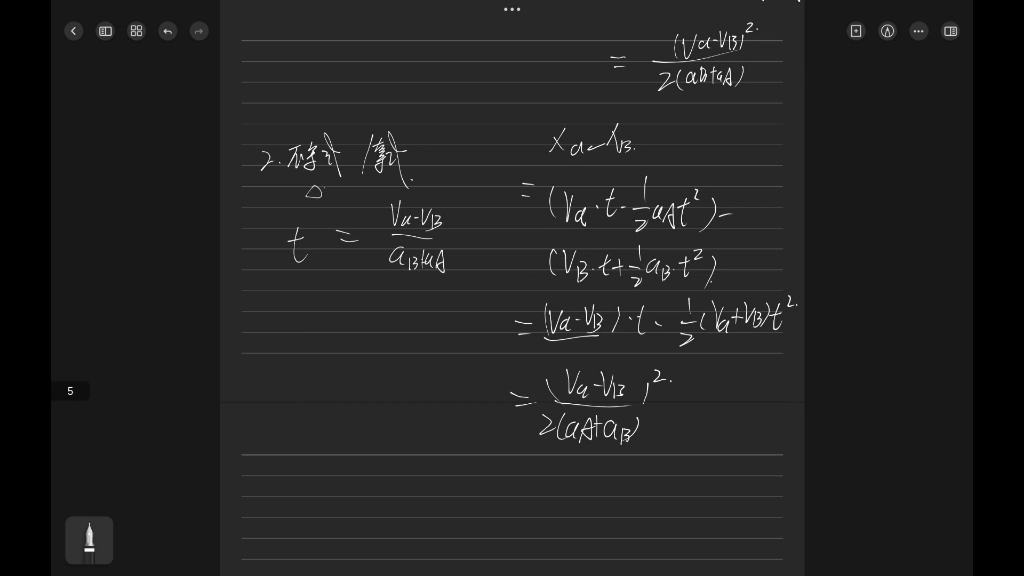 = (Va-VB)²
2(aB+aA)
2.
t = Va-VB
aB+aA
Xa-XB.
= (Va·t-½aAt²)-
(VB·t+½aB·t²)
= (Va-VB)·t-½(Va+VB)t².
= (Va-VB)².
2(aA+aB)
5